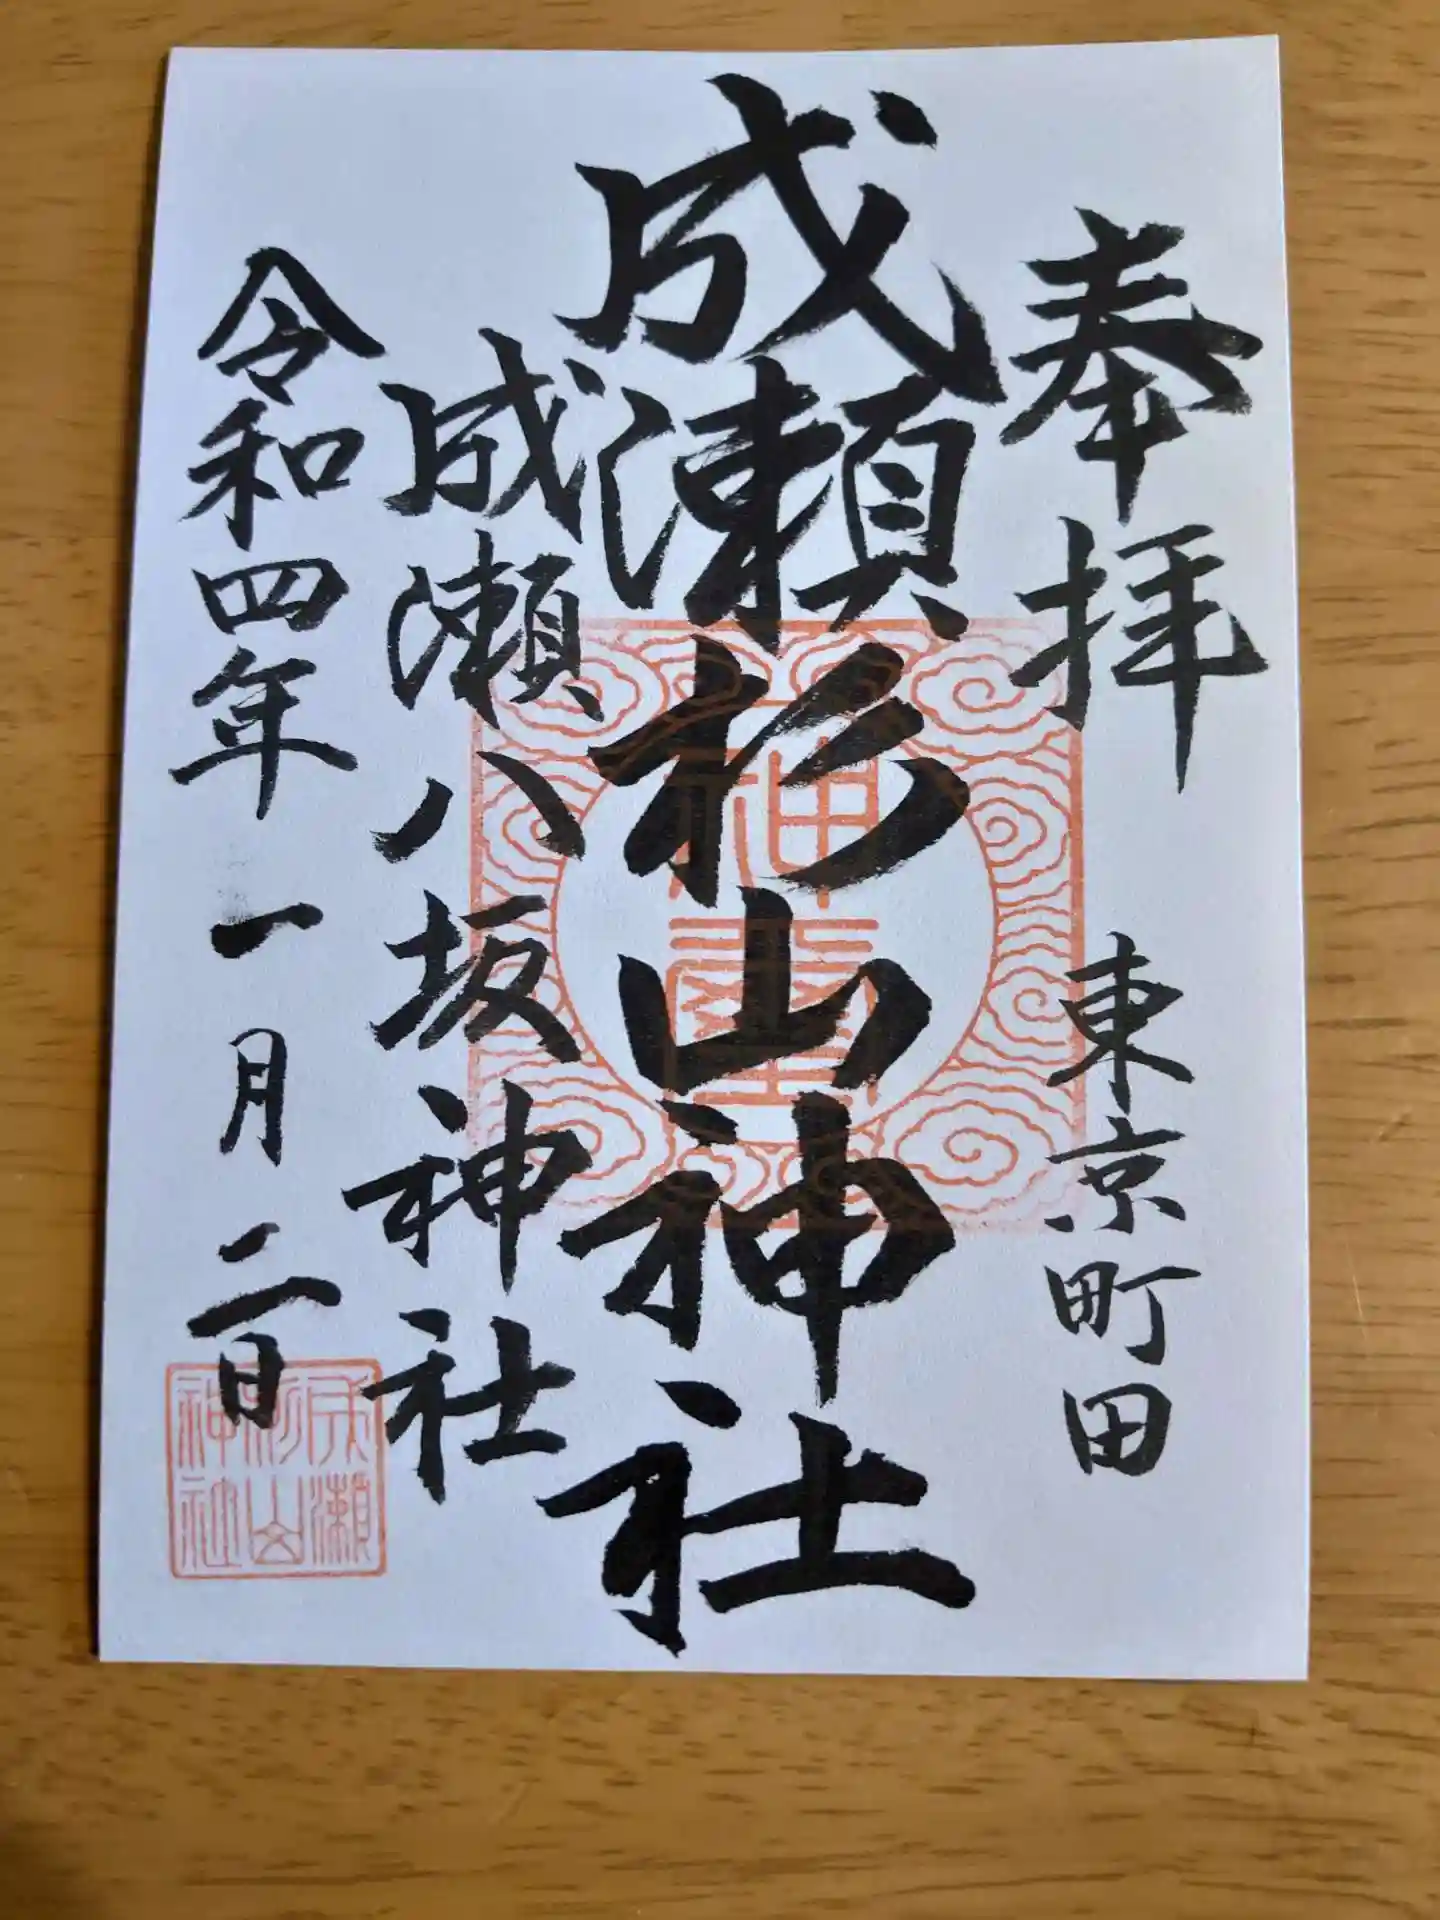 奉拝 東京町田
成瀬杉山神社
成瀬八坂神社
令和四年一月二日
神璽
成瀬
杉山
神社